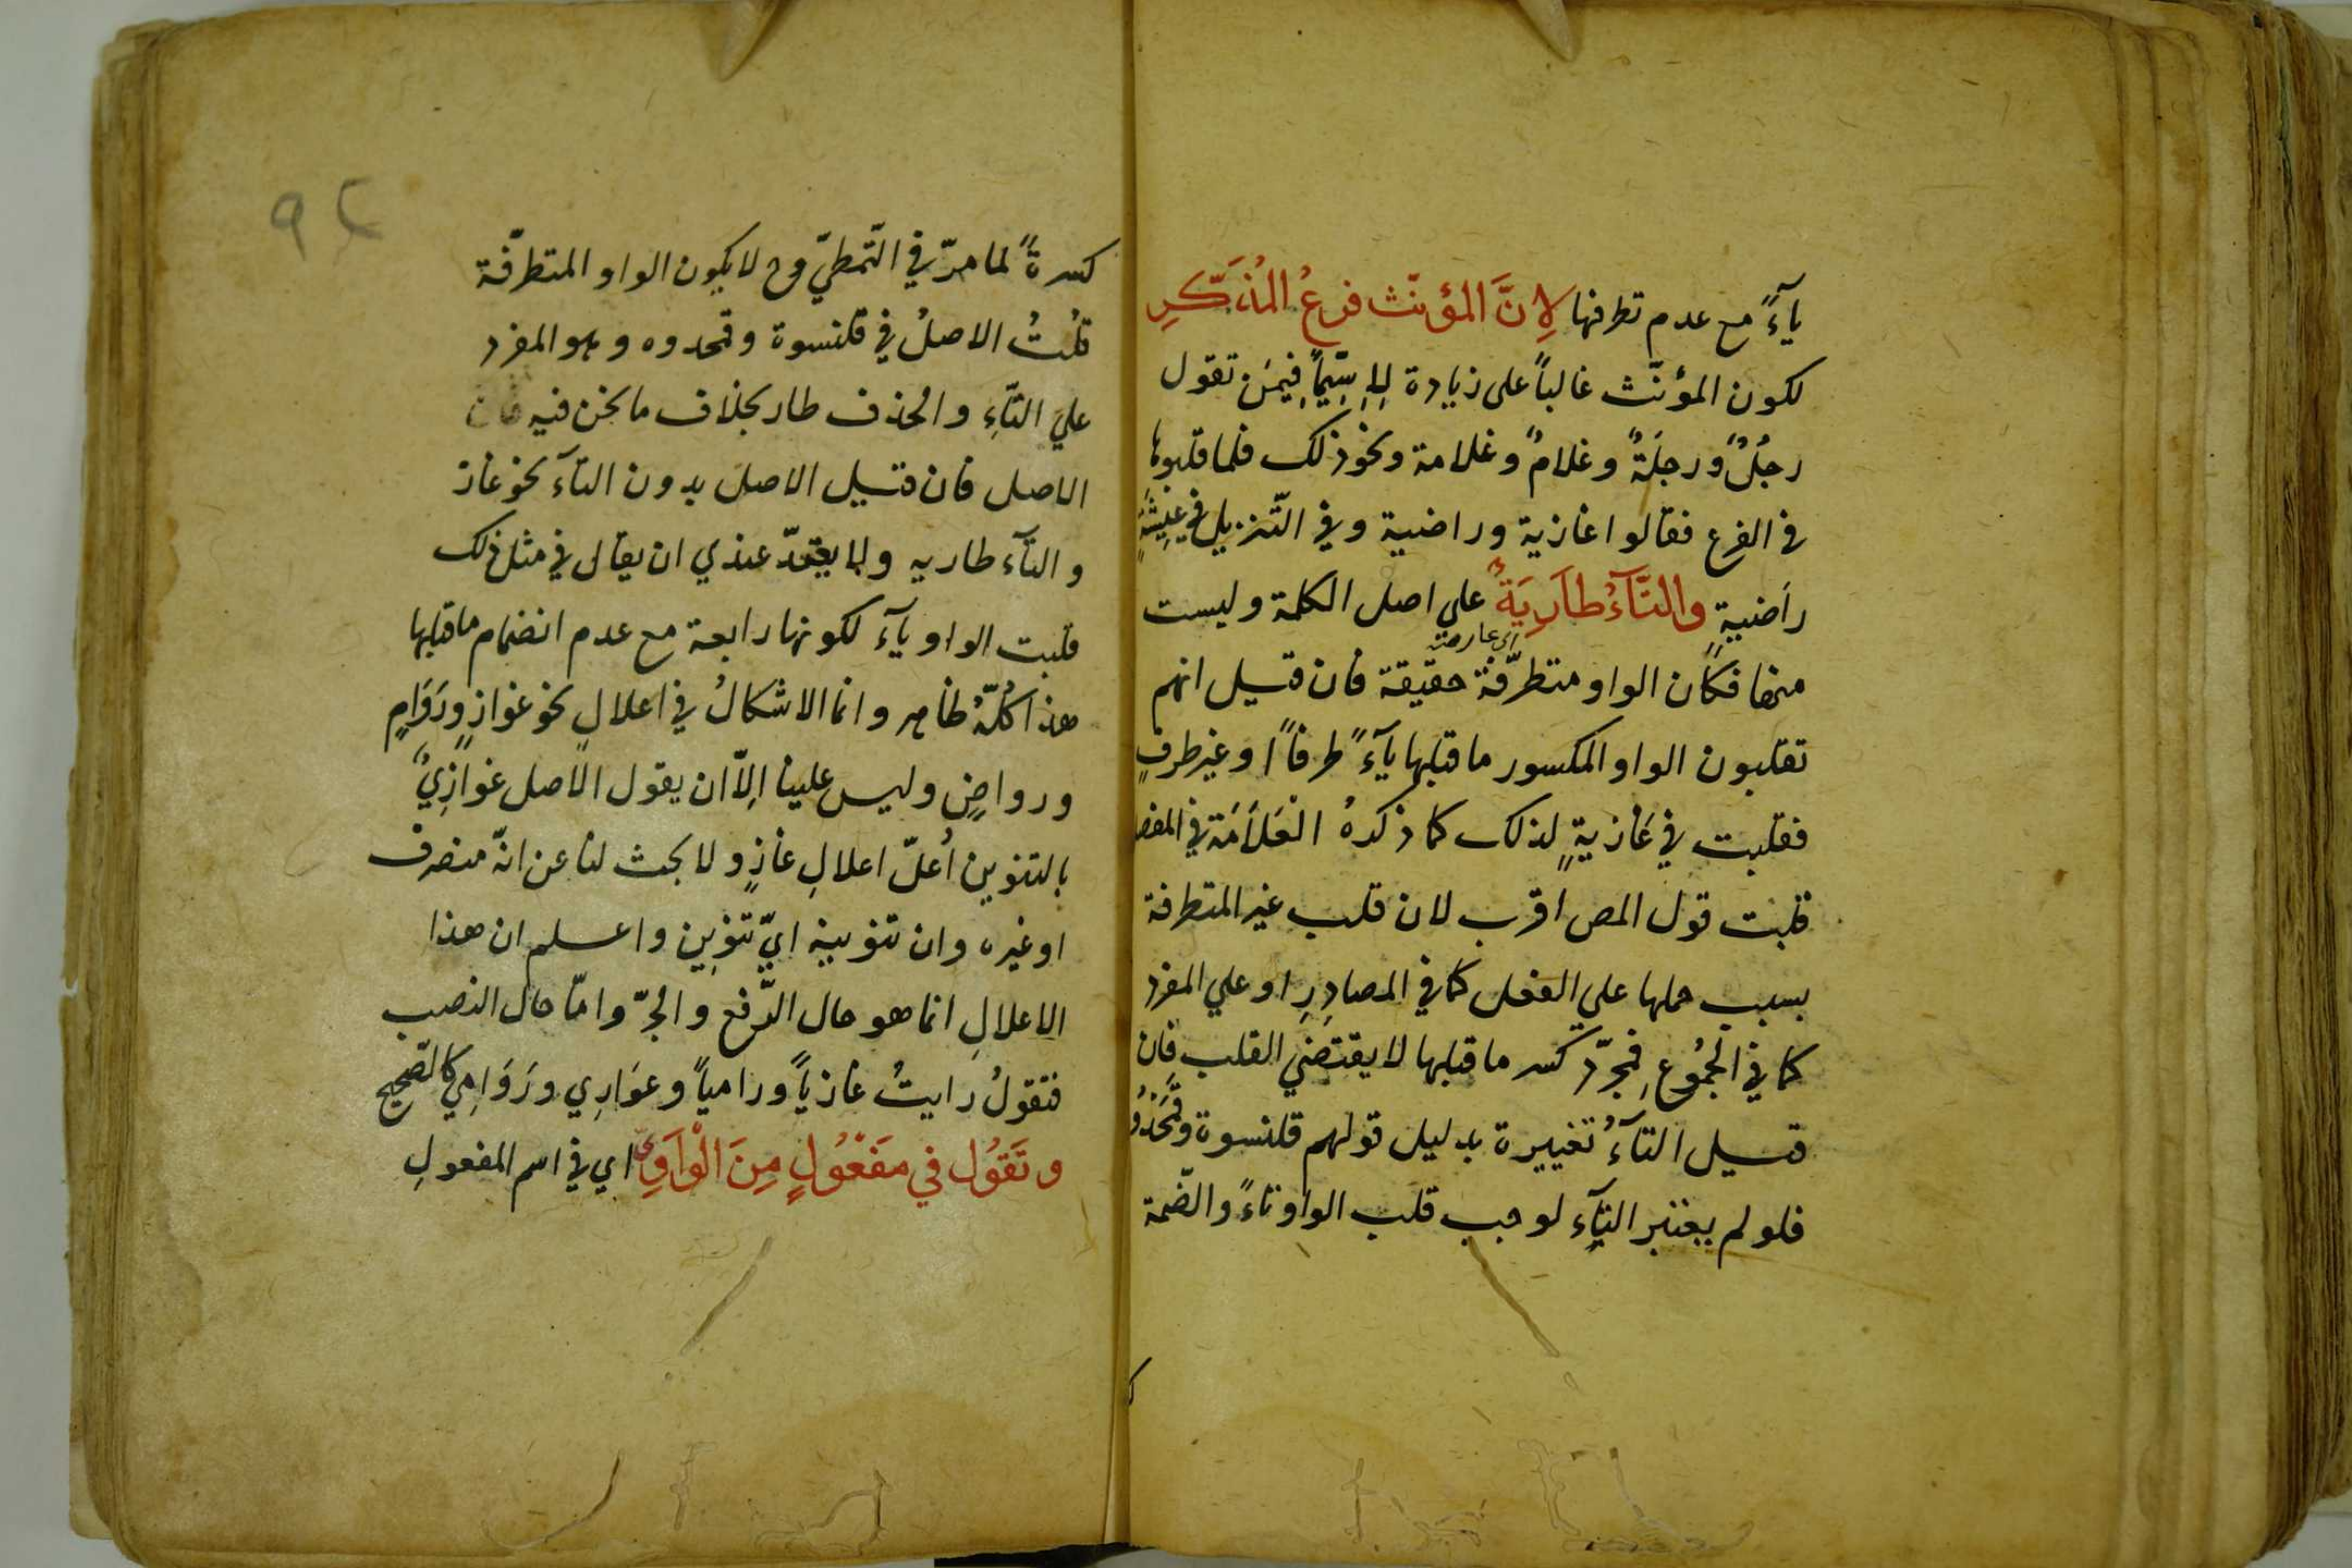 يآءً مع عدم تطرفها لِانَّ المؤنّث فرعُ المُذَكَّرِ
لكون المؤنّث غالباً على زيادة لا سِيّماً فيمَن تقول
رجُلٌ ورجلَةٌ وغلامٌ وغلامة ونحو ذلك فلما قلبوها
في الفرع فقالوا غازية وراضية وفي التّنزيل في عيشَةٍ
راَضيةٍ والتَّآءُ طاَرِيَةٌ علي اصل الكلمة وليست
اى عارضة
منها فكان الواو متطرّفة حقيقة فان قيل انهم
تقلبون الواو المكسور ما قبلها يآءً طرفاً او غير طرفٍ
فقلبت في غَازيةٍ لذلك كما ذكرهُ العَلاَمَة في المفص
قلت قول المص اقرب لان قلب غير المتطرفة
بسبب حملها على الفعل كما في المصادِرِ او علي المفرد
كما في الجمُوعِ فمجرّد كسر ما قبلها لا يقتضي القلب فان
قيل التآءُ تغييرة بدليل قولهم قلنسوة وقَمَحْدُو
فلو لم يعتبر التآء لوجب قلب الواو تاءً والضّمة
٩٤
كسرةً لما مرّ في التّمطيّ وح لا يكون الواو المتطرّفة
قلتُ الاصلُ في قلنسوة وقمحدوه وهو المفرد
عليَ التّآءِ والحذف طار بخلاف ما نحن فيه فان
الاصل فان قيل الاصل بدون التآءَ نحو غاز
والتآء طاريه ولا يبعدّ عندي ان يقال في مثل ذلك
قلبت الواو يآءَ لكونها رابعة مع عدم انضمام ما قبلها
هذا كُلّهُ ظاهر وانما الاشكالُ في اعلالِ نحو غوازٍ ورَوَامٍ
ورواضٍ وليس علينا اِلاّ ان يقول الاصل غوازِيٌ
بالتنوين اُعلّ اعلالِ غازٍ ولا بحث لنا عن انّه منصرف
او غيره وان تنوينه ايّ تنوِين واعلم ان هذا
الاعلالِ انما هو حال الرّفع والجرّ وامّا حال النصب
فتقولُ رايتُ غازياً ورامياً وعوَارِي ورَوَامِيَ كالصّحيح
وتَقَوُل في مَفَعُولٍ مِنَ الْوَاَوِيّ اي في اسم المفعولِ